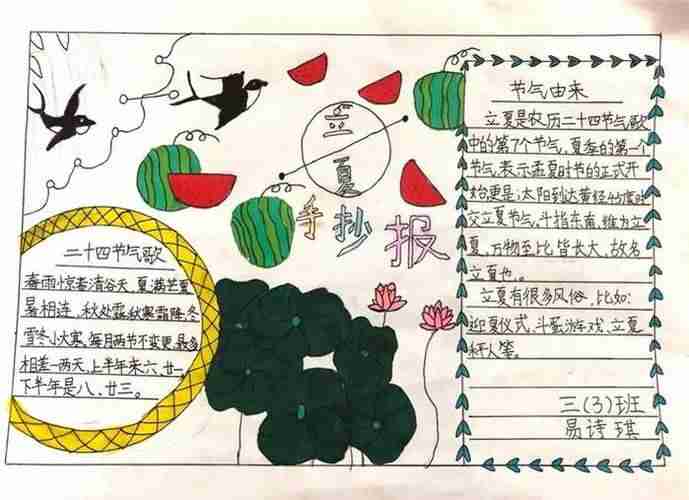 立夏
手抄报
二十四节气歌
春雨惊春清谷天,夏满芒夏
暑相连,秋处露秋寒霜降,冬
雪冬小大寒,每月两节不变更,最多
相差一两天,上半年来六、廿一,
下半年是八、廿三。
节气由来
立夏是农历二十四节气歌
中的第7个节气,夏季的第一个
节气,表示孟夏时节的正式开
始更是:太阳到达黄经45度时
交立夏节气。斗指东南,维为立
夏,万物至比皆长大,故名
立夏也。
立夏有很多风俗,比如:
迎夏仪式、斗蛋游戏、立夏
秤人等。
三(3)班
易诗琪